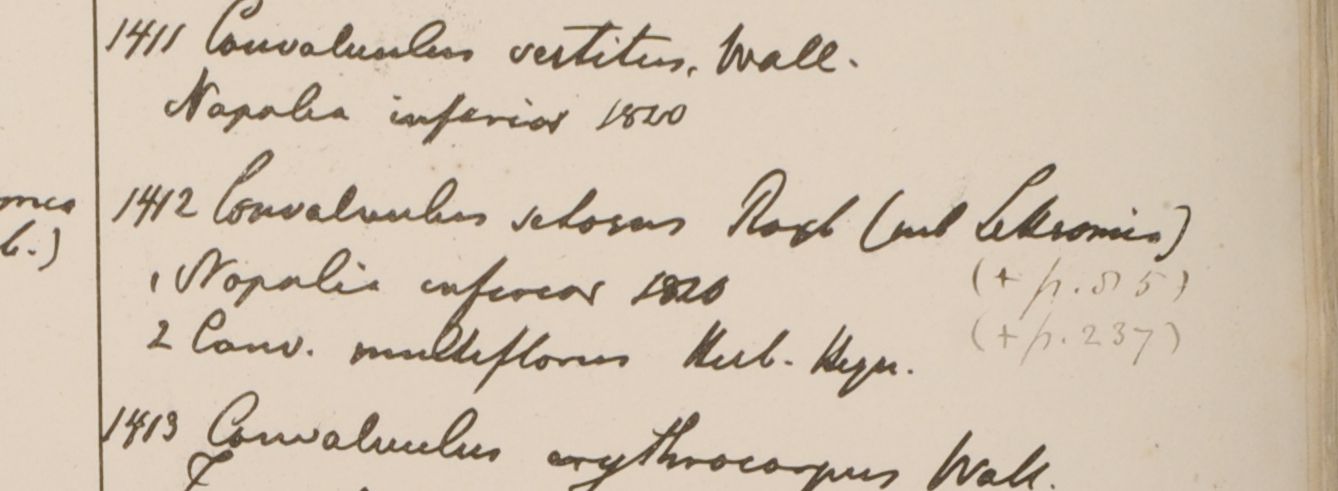 1411 Convolvulus vestitus. Wall.
Napalia inferior 1820
mea
b.)
1412 Convolvulus setosus Roxb (sub Lettsomia)
(+ p. 85)
1 Napalia inferior 1820
(+ p. 237)
2 Conv. multiflorus Herb. Heyn.
1413 Convolvulus erythrocarpus Wall.